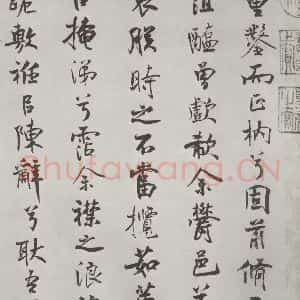 量鑿而正枘兮固前脩
醢曾歔欷余鬱邑兮
哀朕時之不當攬茹
㠯掩涕兮霑余襟之浪
跪敷衽㠯陳辭兮耿吾
Shufawang.CN